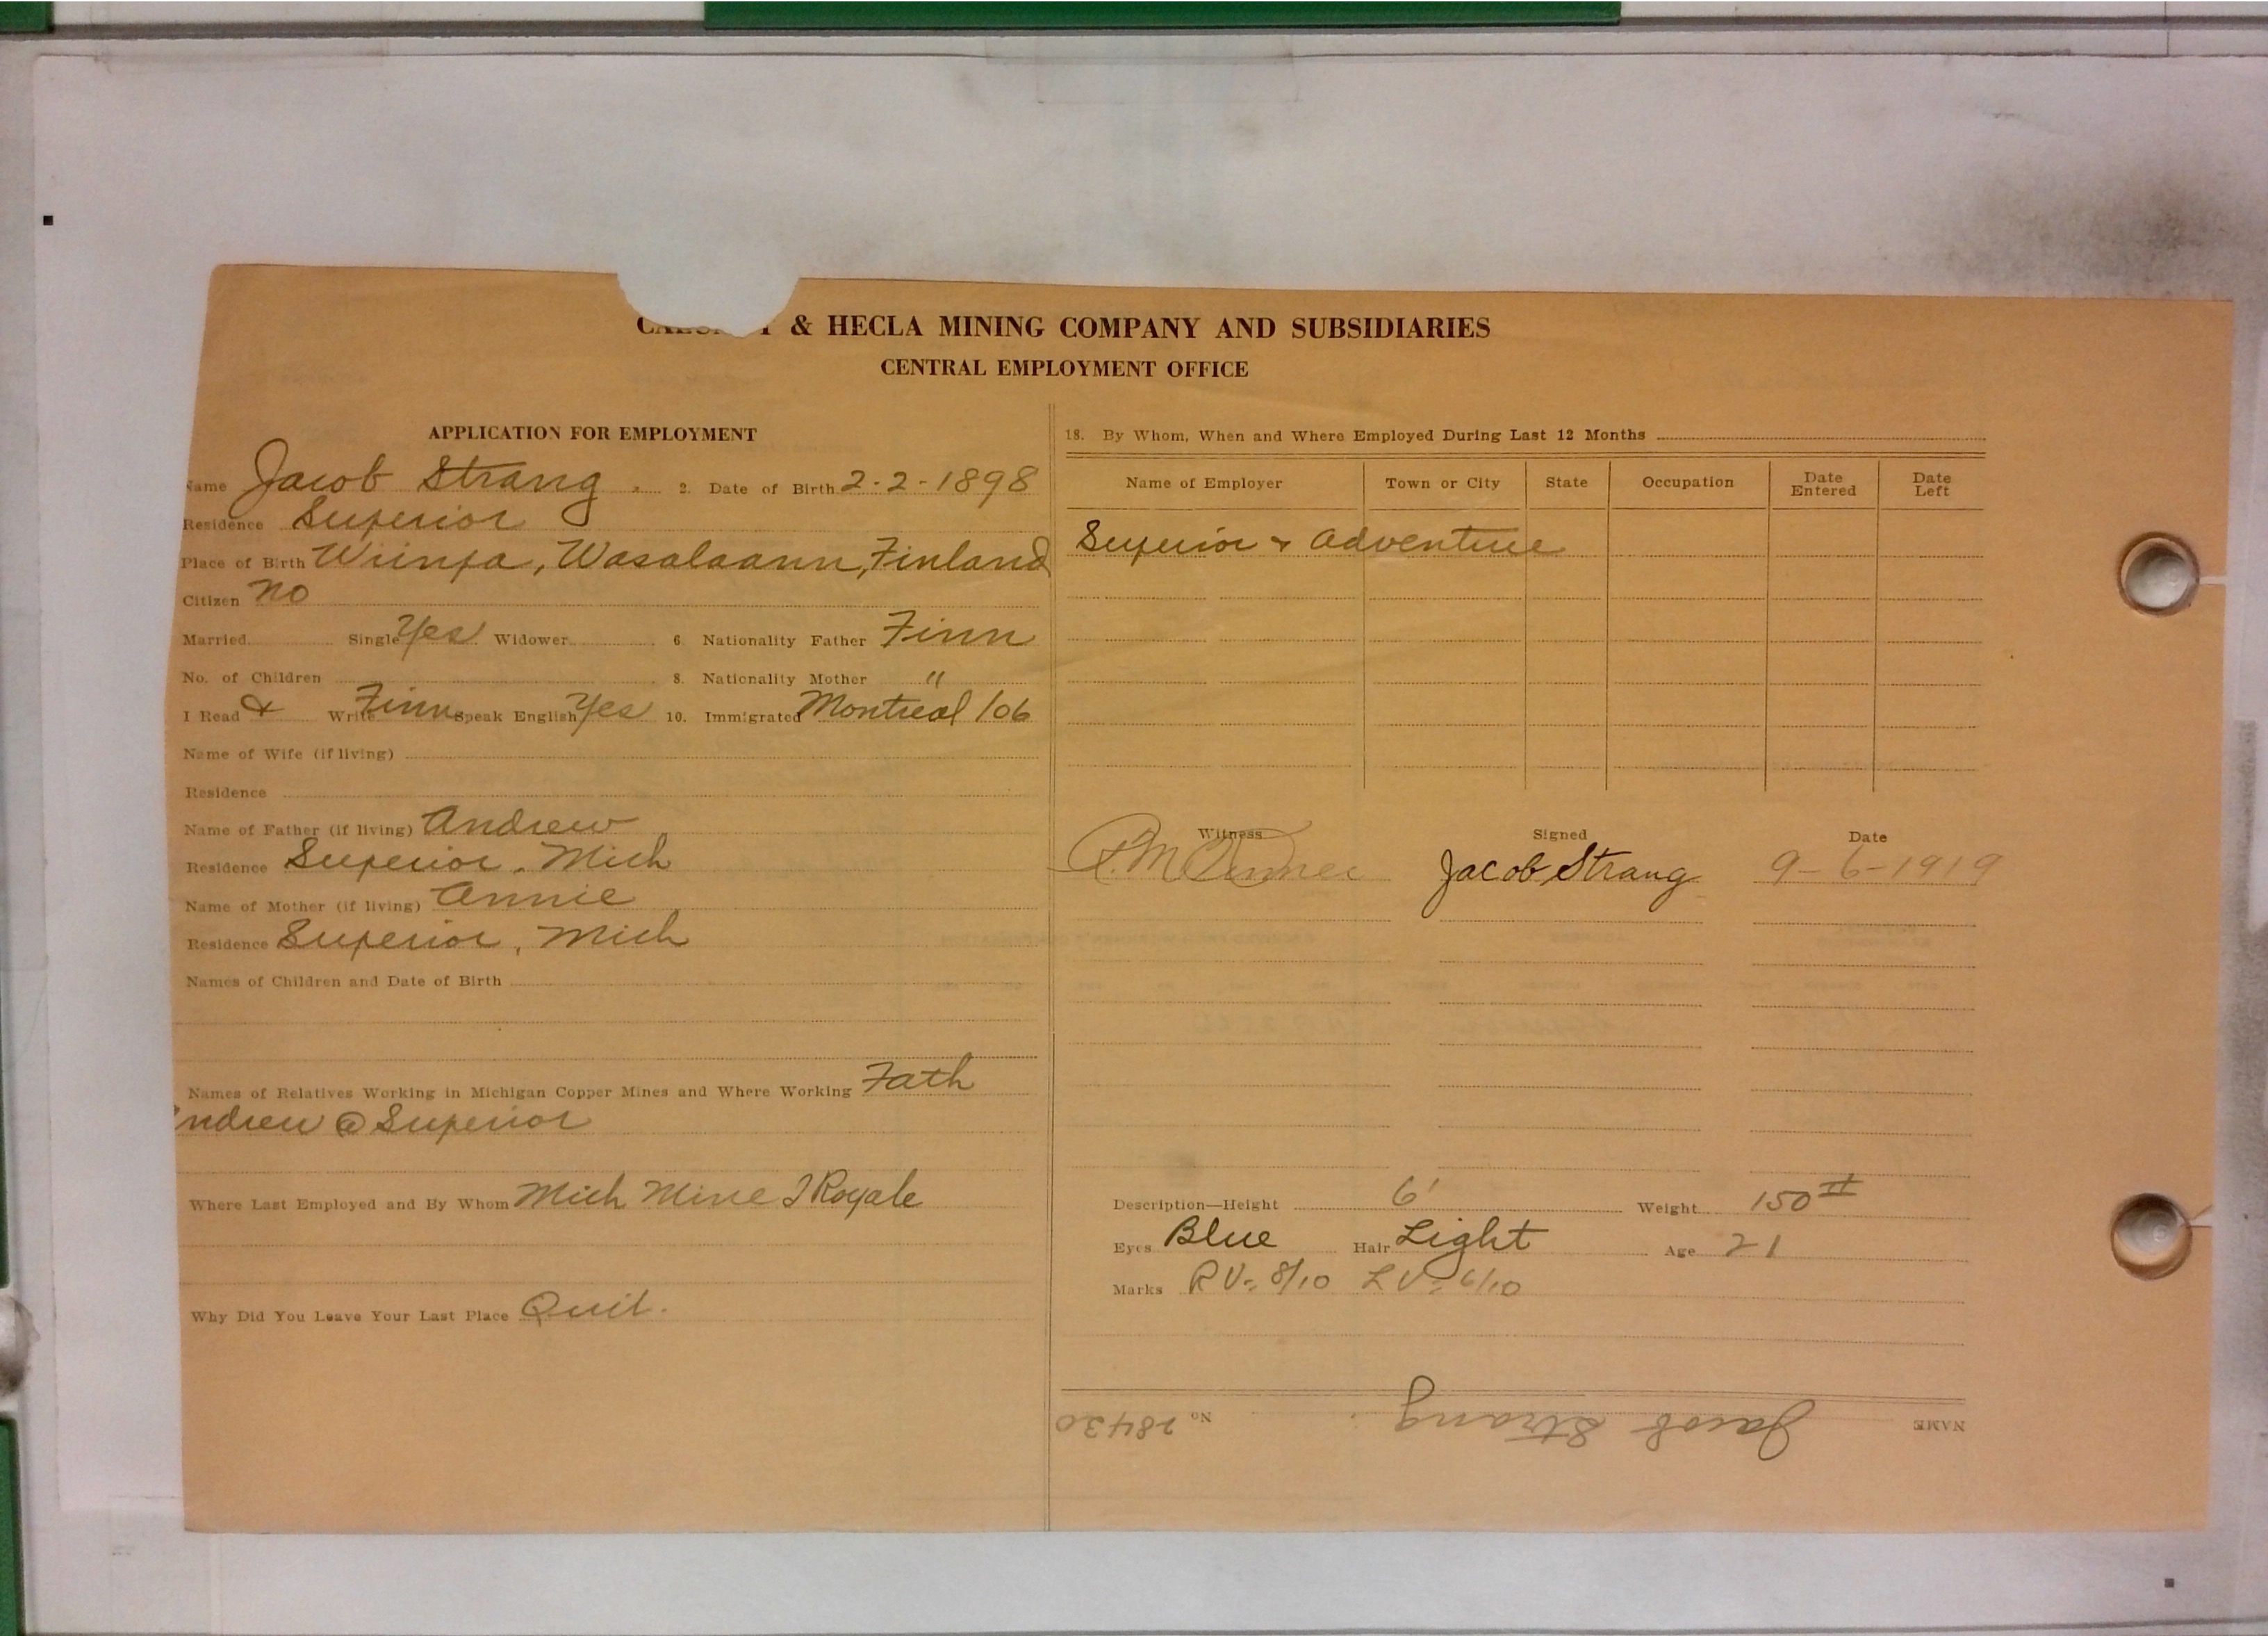 & HECLA MINING COMPANY AND SUBSIDIARIES
CENTRAL EMPLOYMENT OFFICE
APPLICATION FOR EMPLOYMENT
Name Jacob Strang 2. Date of Birth 2-2-1898
Residence Superior
Place of Birth Wiinpa, Wasalaann, Finland
Citizen no
Married Single Yes Widower 6. Nationality Father Finn
No. of Children 8. Nationality Mother "
I Read & Write Finn Speak English Yes 10. Immigrated Montreal /06
Name of Wife (if living)
Residence
Name of Father (if living) Andrew
Residence Superior, Mich
Name of Mother (if living) Annie
Residence Superior, Mich
Names of Children and Date of Birth
Names of Relatives Working in Michigan Copper Mines and Where Working Fath
ndrew @ Superior
Where Last Employed and By Whom Mich Mine I Royale
Why Did You Leave Your Last Place Quit.
18. By Whom, When and Where Employed During Last 12 Months
Name of Employer Town or City State Occupation Date Entered Date Left
Superior & Adventure
Witness Signed Date
Jacob Strang 9-6-1919
Description—Height 6' Weight 150#
Eyes Blue Hair Light Age 21
Marks RV= 8/10 LV= 6/10
NAME Jacob Strang No 28430